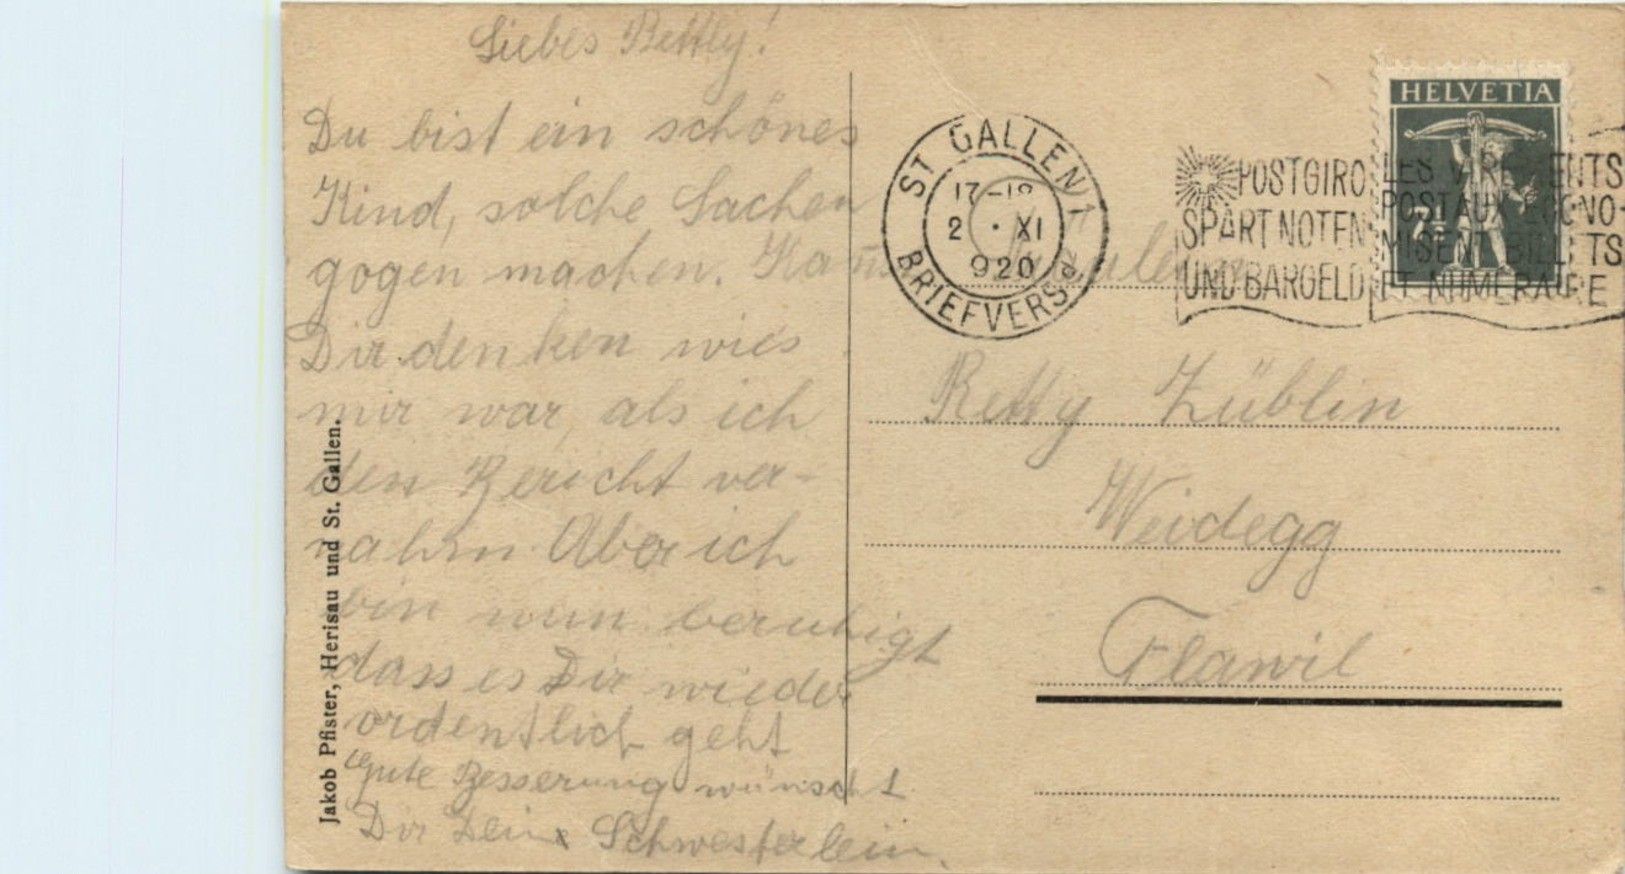 Liebes Bettly!
Du bist ein schönes
Kind, solche Sachen
gogen machen.
Dir denken wies
mir war, als ich
den Bericht ver-
nahm. Aber ich
bin nun beruhigt
dass es Dir wieder
ordentlich geht
Gute Besserung wünscht
Dir Dein Schwesterlein.
Jakob Pfister, Herisau und St. Gallen.
ST. GALLEN 1
17-18
2 · XI
920
BRIEFVERS.
POSTGIRO
SPART NOTEN
UND BARGELD
LES VIREMENTS
POSTAUX ECONO-
MISENT BILLETS
ET NUMERAIRE
HELVETIA
7½
Betty Züblin
Weidegg
Flawil